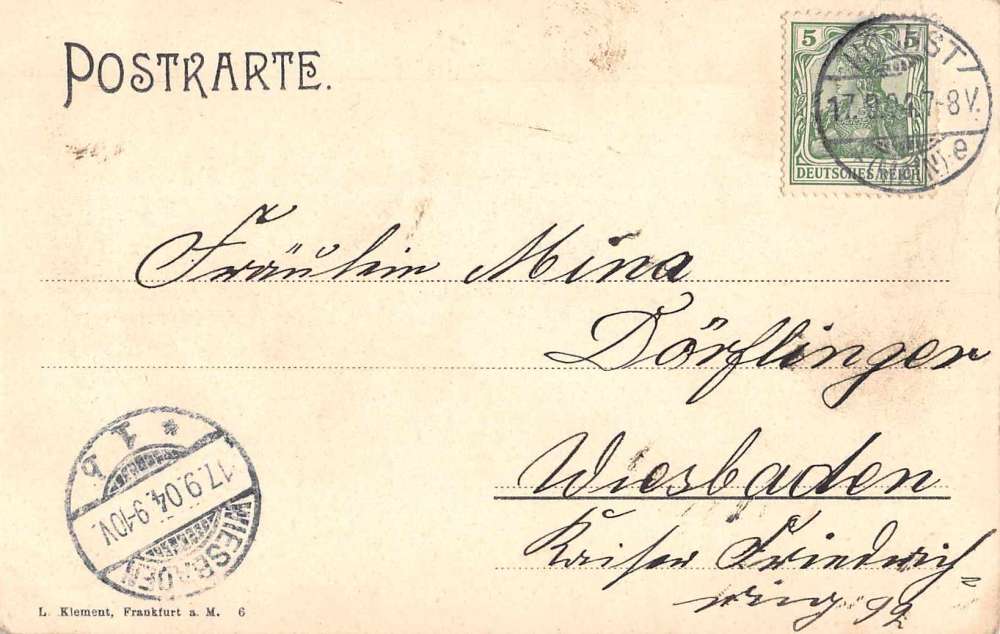 POSTKARTE.
5 5
HÖCHST
17.9.04.7-8V.
(MAIN) e
DEUTSCHES REICH
Fräulein Mina
Dörflinger
Wiesbaden
Kaiser Friedrich
ring 92
* 1 b
17.9.04.9-10V.
WIESBADEN
L. Klement, Frankfurt a. M. 6